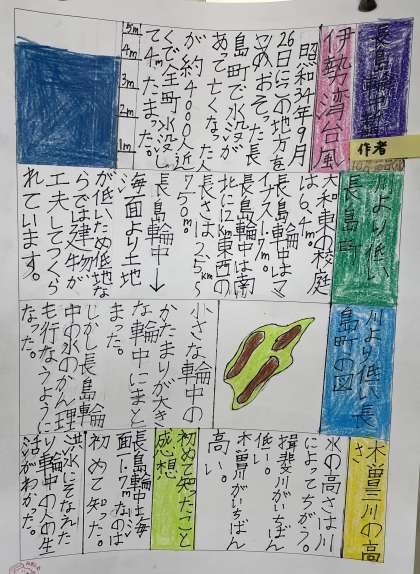 長島輪中
作者
伊勢湾台風
昭和34年9月
26日にこの地方を
おそった長
島町で水没が
あって亡くなった人
が約4000人近
くで全町水没し
て4mたまった。
5m
4m
3m
2m
1m
川より低い
長島町
大和東の校庭
は6.4m。
長島輪中はマ
イナス1.7m。
長島輪中は南
北に12km東西の
長さは2.5km〜
750m。
長島輪中↓
毎面より土地
が低いため低地な
らでは建物が
工夫してつくら
れています。
川より低い長
島町の図
小さな輪中の
かたまりが大き
な輪中にまと
まった。
しかし長島輪
中の水のかん理
も行なうように
なった。
木曽三川の高
さ
水の高さは川
によってちがう。
揖斐川がいちばん
低い。
木曽川がいちばん
高い。
初めて知ったこと
感想
長島輪中は毎
面-1.7mなのは
初めて知った。
洪水にそなえた
輪中の人の生
活がわかった。